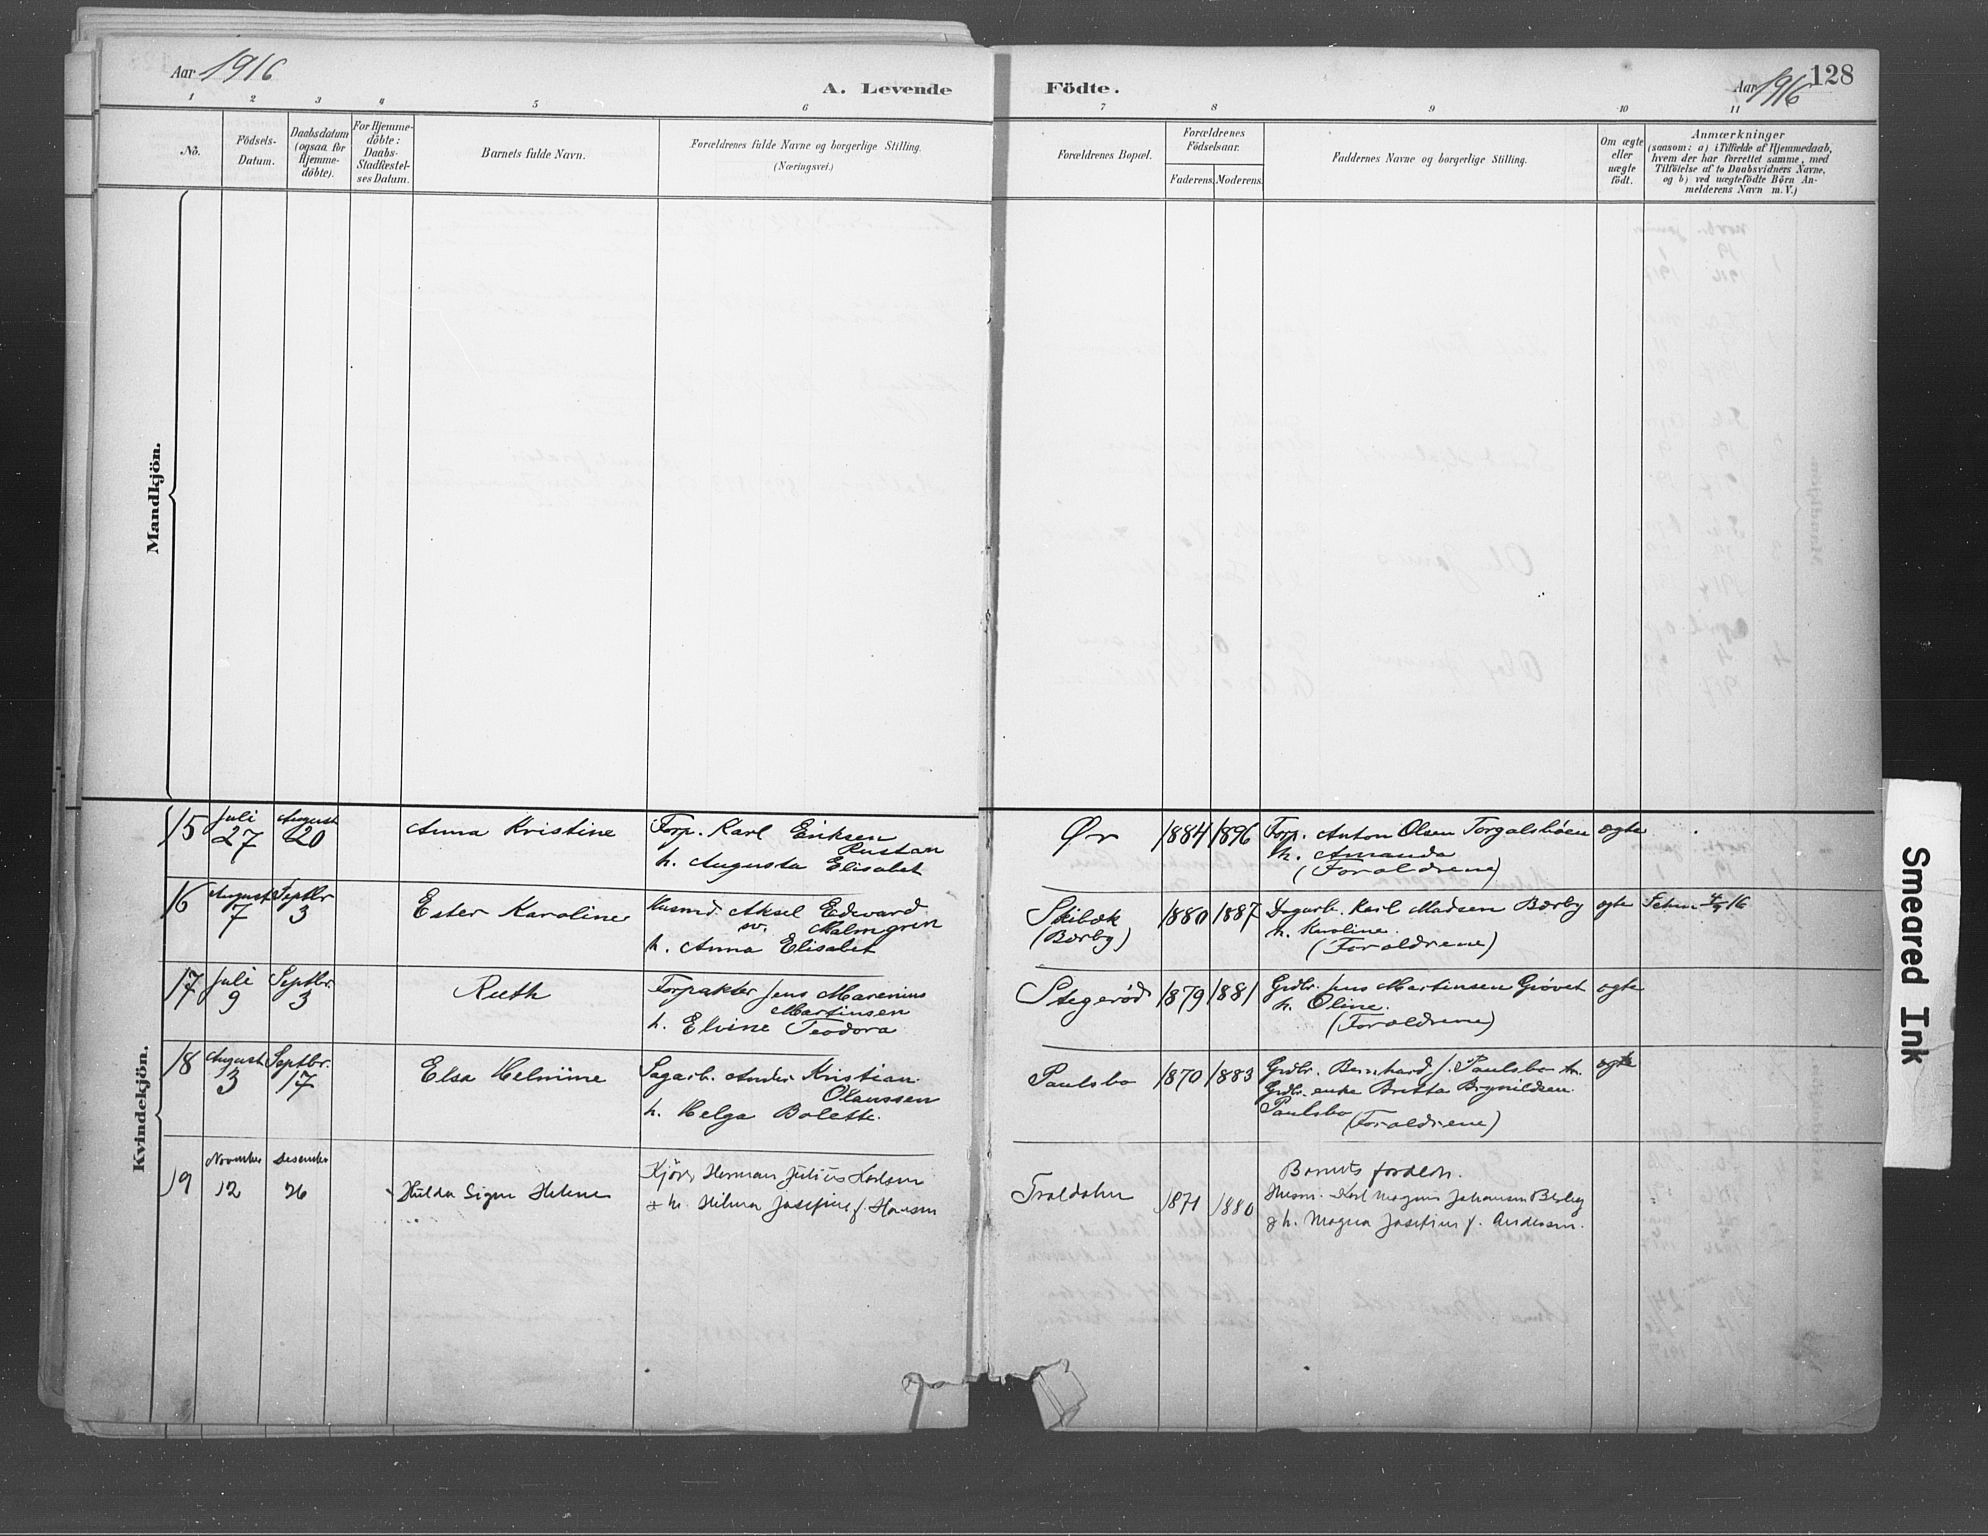 Aar 1916
A. Levende Födte.
Aar 1916
128
1 2 3 4 5 6 7 8 9 10 11
No.
Födsels-
Datum.
Daabsdatum
(ogsaa for
Hjemme-
döbte).
For Hjemme-
döbte:
Daabs-
Stadfæstel-
ses Datum.
Barnets fulde Navn.
Forældrenes fulde Navne og borgerlige Stilling.
(Næringsvei.)
Forældrenes Bopæl.
Forældrenes
Födselsaar.
Faderens. Moderens.
Faddernes Navne og borgerlige Stilling.
Om ægte
eller
uægte
födt.
Anmærkninger
(saasom: a) i Tilfælde af Hjemmedaab,
hvem der har forrettet samme, med
Tilföielse af to Daabsvidners Navne,
og b) ved uægtefödte Börn An-
melderens Navn m. V.)
Mandkjön.
Kvindekjön.
15 Juli 27 August 20 Anna Kristine
Forp. Karl Eriksen
Rustan
h. Augusta Elisabet
Ør 1884 1896
Forp. Anton Olsen Torgalsbøen
h. Amanda
(Forældrene)
ægte
16 August 7 Septbr 3 Ester Karoline
Husmd. Aksel Edevard
sv. Malmgren
h. Anna Elisabet
Skibæk
(Bærby)
1880 1887
Dagarb. Karl Madsen Bærby
h. Karoline.
(Forældrene)
ægte
4/9 16
17 Juli 9 Septbr. 3 Ruth
Forpakter Jens Marenius
Martinsen
h. Elvine Teodora
Stegerød 1879 1881
Grdbr. Jens Martinsen Grøvet
h. Oline.
(Forældrene)
ægte
18 August 13 Septbr. 17 Elsa Helmine
Sagarb. Anders Kristian
Olaussen
h. Helga Bolette.
Paulsbo 1870 1883
Grdbr. Bernhard J. Paulsbo
Grdbr. enke Britta Brynildsen
Paulsbo
(Forældrene)
ægte
19 November 12 Desember 26 Hulda Signe Helene
Herman Julius Karlsen
& h. Hilma Josefine f. Hansen
Traldalen 1871 1880
Barnets foreldre.
Karl Magnus Johansen Berby
& h. Magna Josefine f. Andersen.
Smeared Ink